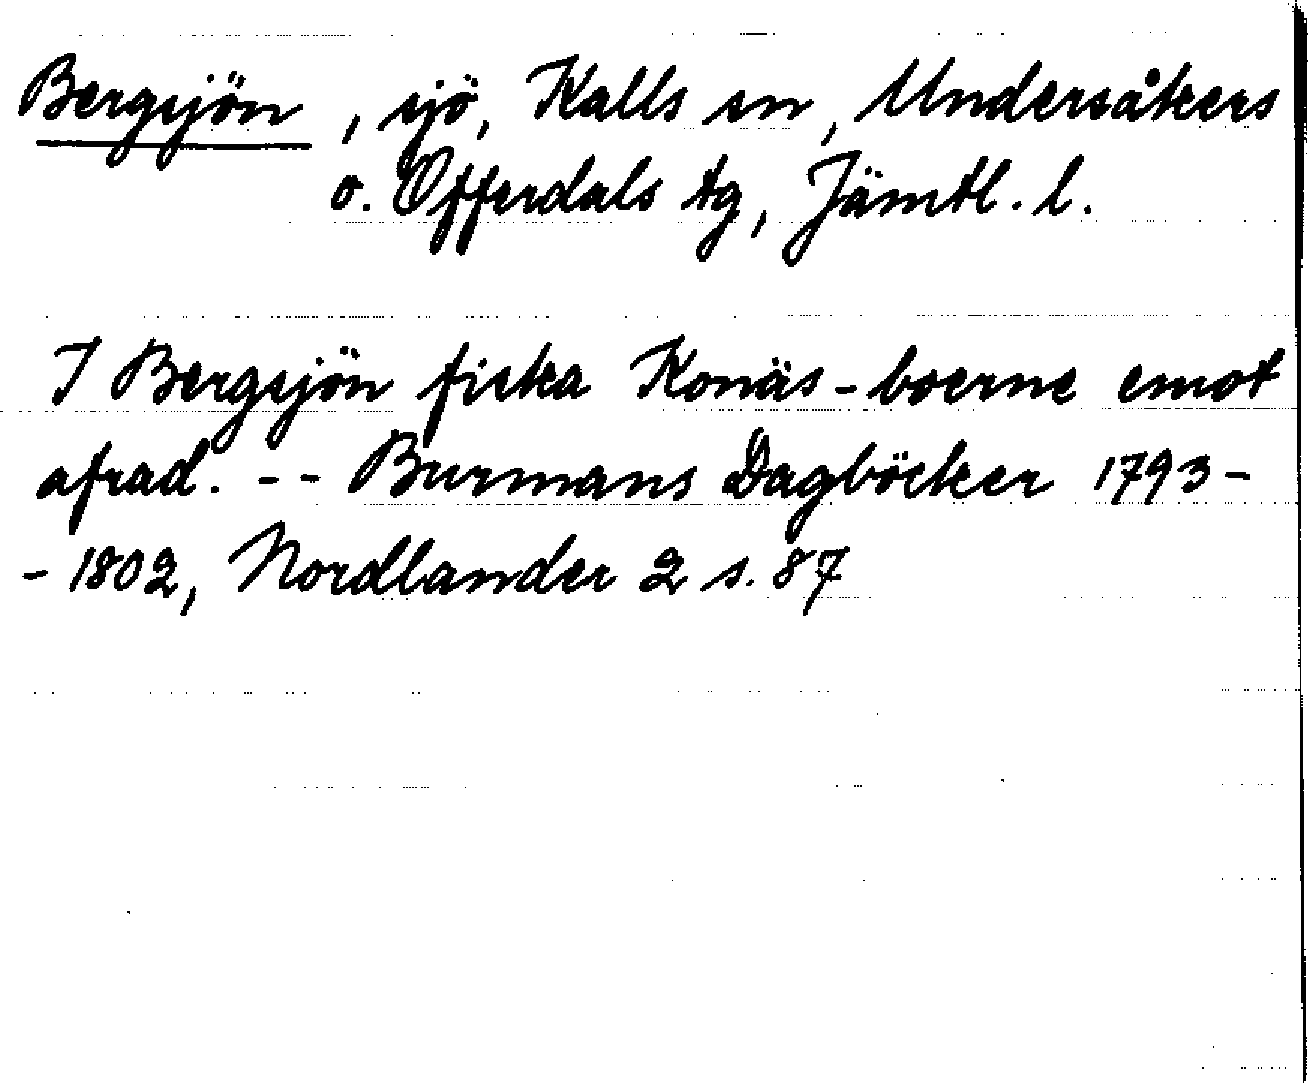 Bergsjön, sjö, Kalls sn, Undersåkers
o. Offerdals tg, Jämtl. l.
I Bergsjön fiska Konäs-boerne emot
afrad. -- Burmans Dagböcker 1793-
-1802, Nordlander 2 s. 87